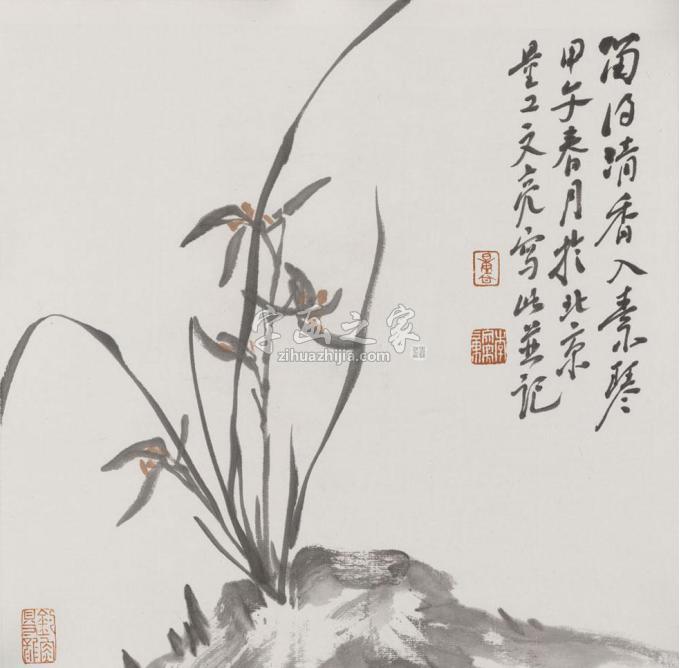 留得清香入素琴
甲午春月於北京
量工文亮寫此並記
字画之家
zihuazhijia.com